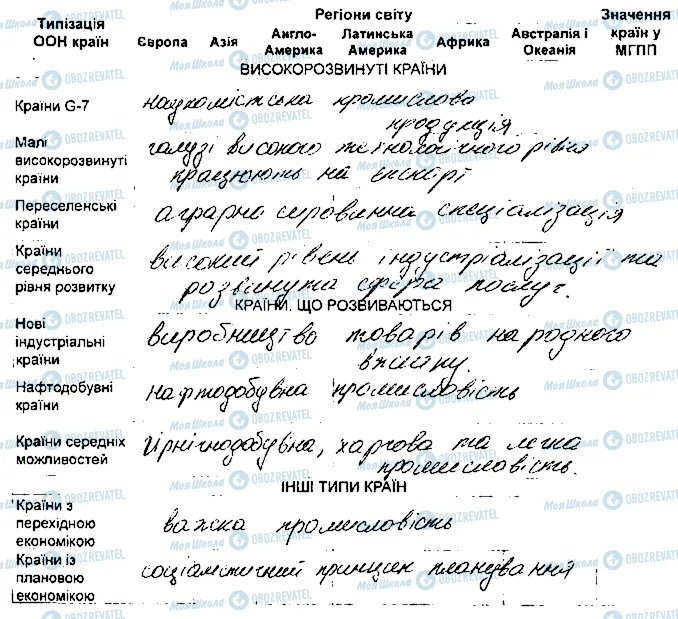 Типізація ООН країн
Регіони світу
Значення країн у МГПП
Європа Азія Англо-Америка Латинська Америка Африка Австралія і Океанія
ВИСОКОРОЗВИНУТІ КРАЇНИ
Країни G-7
наукомістська промислова
продукція
Малі високорозвинуті країни
галузі високого технологічного рівня
працюють на експорт
Переселенські країни
аграрно сировинна спеціалізація
Країни середнього рівня розвитку
високий рівень індустріалізації та
розвинута сфера послуг.
КРАЇНИ, ЩО РОЗВИВАЮТЬСЯ
Нові індустріальні країни
виробництво товарів народного
вжитку.
Нафтодобувні країни
нафтодобувна промисловість
Країни середніх можливостей
гірнічнодобувна, харчова та легка
промисловість.
ІНШІ ТИПИ КРАЇН
Країни з перехідною економікою
важка промисловість
Країни із плановою економікою
соціалістичний принцип планування